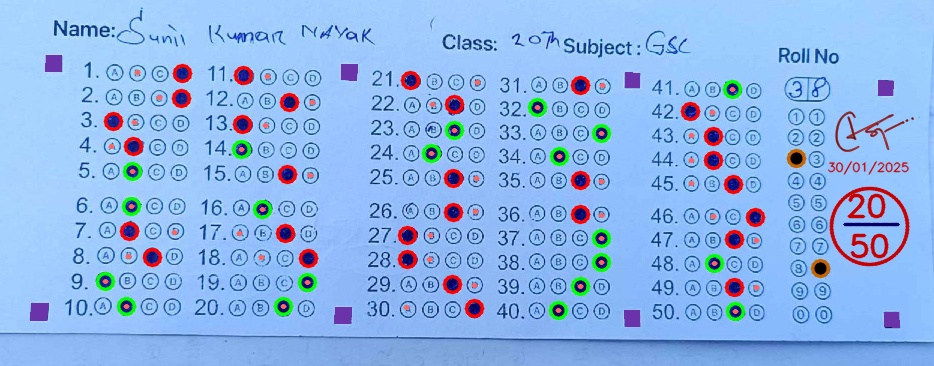 Name: Sunil Kumar NAYAK
Class: 20th Subject: GSC
Roll No
38
1. A B C D
2. A B C D
3. A B C D
4. A B C D
5. A B C D
6. A B C D
7. A B C D
8. A B C D
9. A B C D
10. A B C D
11. A B C D
12. A B C D
13. A B C D
14. A B C D
15. A B C D
16. A B C D
17. A B C D
18. A B C D
19. A B C D
20. A B C D
21. A B C D
22. A B C D
23. A B C D
24. A B C D
25. A B C D
26. A B C D
27. A B C D
28. A B C D
29. A B C D
30. A B C D
31. A B C D
32. A B C D
33. A B C D
34. A B C D
35. A B C D
36. A B C D
37. A B C D
38. A B C D
39. A B C D
40. A B C D
41. A B C D
42. A B C D
43. A B C D
44. A B C D
45. A B C D
46. A B C D
47. A B C D
48. A B C D
49. A B C D
50. A B C D
1 1
2 2
3
4 4
5 5
6 6
7 7
8
9 9
0 0
30/01/2025
20
50